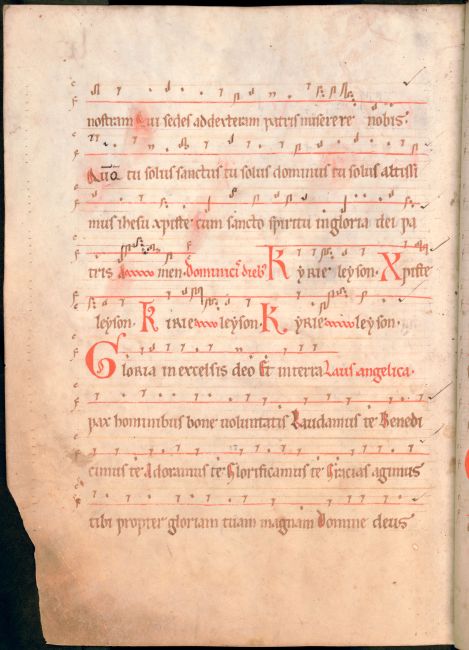 nostram Qui sedes ad dexteram patris miserere nobis.
Quō tu solus sanctus tu solus dominus tu solus altissi
mus ihesu xpiste cum sancto spiritu in gloria dei pa
tris A men. Dominic̄ dieb; Kyrie leyson. Xpiste
leyson. Kirie leyson. Kyrie leyson.
Gloria in excelsis deo Et in terra Laus angelica.
pax hominibus bone uoluntatis Laudamus te Benedi
cimus te Adoramus te Glorificamus te Gracias agimus
tibi propter gloriam tuam magnam Domine deus